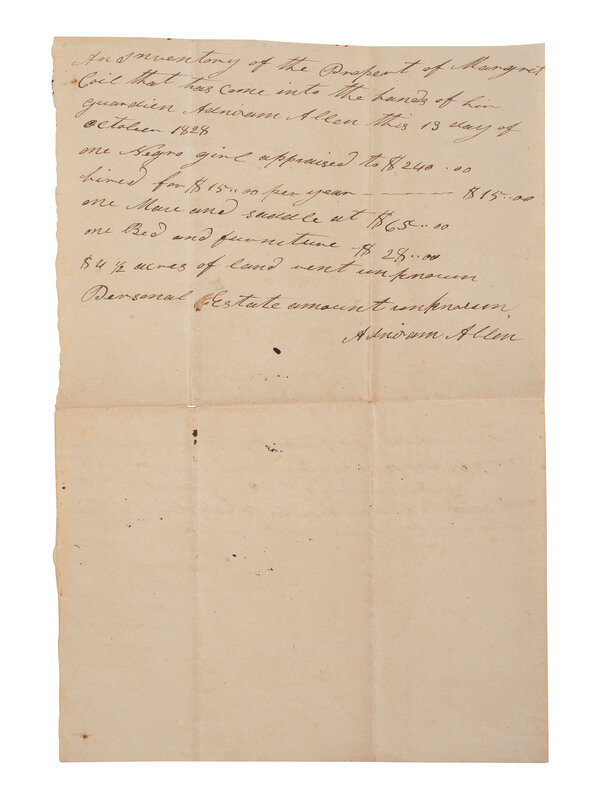 An Inventory of the Propert of Margret
Coil that has Come into the hands of hir
guardien Adniram Allen this 13 day of
October 1828
one Negro girl appraised to $240..00
hired for $15..00 per year — — — $15..00
one Mare and saddle at $65..00
one Bed and furniture $28..00
84 ½ acres of land rent unknown
Personal Estate amount unknown
Adniram Allen